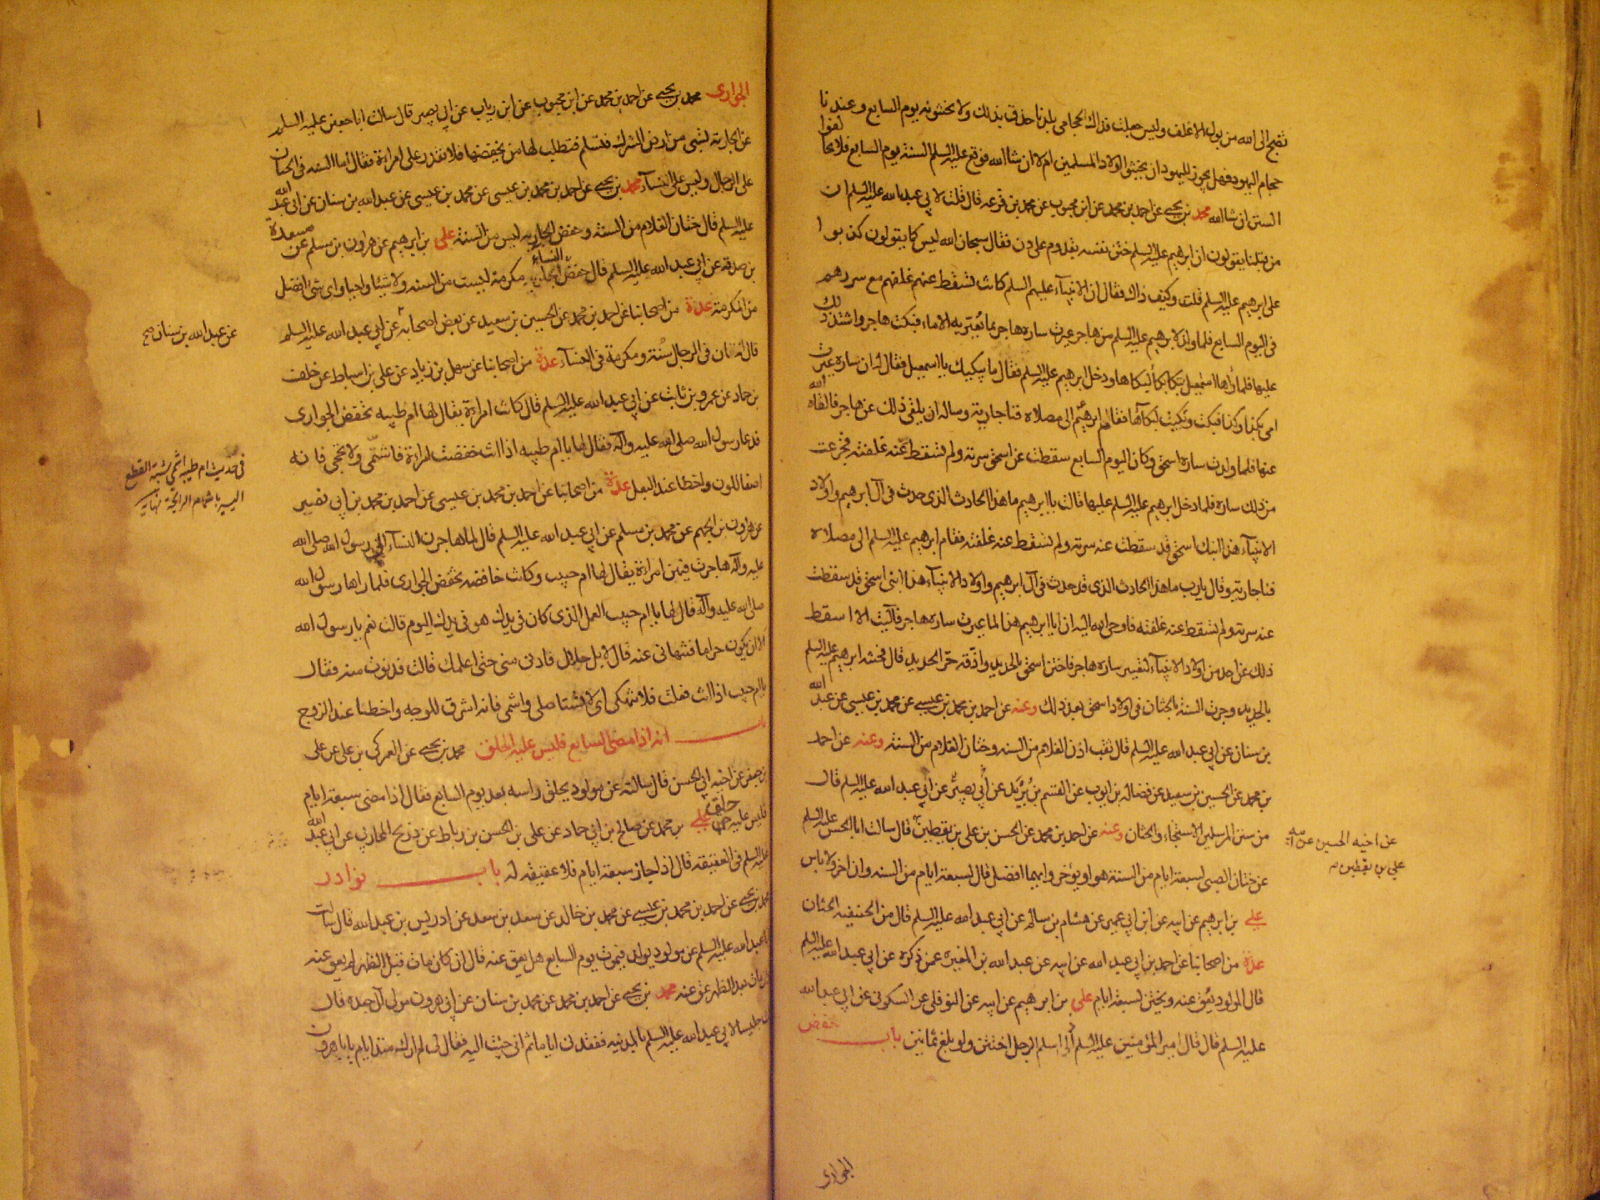 تضج الى الله من بول الاغلف وليس جعلت فداك لحجامى بلدنا حذق بذلك ولا يختنونه يوم السابع وعندنا
حجام اليهود فهل يجوز لليهود ان يختنوا اولاد المسلمين ام لا ان شاء الله فوقع عليه السلم السنة يوم السابع فلا تخالفوا
السنن ان شا الله محمد بن يحيى عن احمد بن محمد عن ابن محبوب عن محمد بن قزعه قال قلت لابى عبد الله عليه السلم ان
من قبلنا يقولون ان ابرهيم عليه السلم ختن نفسه بقدوم على دن فقال سبحان الله ليس كما يقولون كذبوا
على ابرهيم عليه السلم قلت وكيف ذاك فقال ان الانبياء عليهم السلم كانت تسقط عنهم غلفهم مع سررهم
فى اليوم السابع فلما ولد لابرهيم عليه السلم من هاجر عيرت ساره هاجر بما تعير به الاماء فبكت هاجر واشتد ذلك
عليها فلما راها اسمعيل تبكى بكا لبكاها ودخل ابرهيم عليه السلم فقال ما يبكيك يا اسمعيل فقال له ان ساره عيرت
امى بكذا وكذا فبكت وبكيت لبكائها فقام ابرهيم الى مصلاه فناجا ربه وساله ان يلقى ذلك عن هاجر فالقاه الله
عنها فلما ولدت ساره اسحق وكان اليوم السابع سقطت عن اسحق سرته ولم تسقط عنه غلفته فجزعت
من ذلك ساره فلما دخل ابرهيم عليه السلم عليها قالت يا ابرهيم ما هذا الحادث الذى حدث فى آل ابرهيم واولاد
الانبياء هذا ابنك اسحق قد سقطت عنه سرته ولم تسقط عنه غلفته فقام ابرهيم عليه السلم الى مصلاه
فناجا ربه وقال يا رب ما هذا الحادث الذى قد حدث فى آل ابرهيم واولاد الانبياء هذا ابنى اسحق قد سقطت
عنه سرته ولم تسقط عنه غلفته فاوحى الله اليه ان يا ابرهيم هذا لما عيرت ساره هاجر فآليت الا اسقط
ذلك عن احد من اولاد الانبياء لتعيير ساره هاجر فاختن اسحق بالحديد واذقه حر الحديد قال فختنه ابرهيم عليه السلم
بالحديد وجرت السنة بالختان فى اولاد اسحق بعد ذلك وعنه عن احمد بن محمد بن عيسى عن محمد بن عيسى عن عبد الله
بن سنان عن ابى عبد الله عليه السلم قال ثقب اذن الغلام من السنه وختان الغلام من السنة وعنه عن احمد
بن محمد عن الحسين بن سعيد عن فضاله بن ايوب عن القسم بن بريد عن ابى بصير عن ابى عبد الله عليه السلم قال
من سنن المرسلين الاستنجاء والختان وعنه عن احمد بن محمد عن الحسن بن على بن يقطين قال سالت ابا الحسن عليه السلم
عن ختان الصبى لسبعة ايام من السنة هو او يؤخر وايهما افضل قال لسبعة ايام من السنه وان اخر ولا باس
على بن ابرهيم عن ابيه عن ابن ابى عمير عن هشام بن سالم عن ابى عبد الله عليه السلم قال من الحنيفيه الختان
عدة من اصحابنا عن احمد بن ابى عبد الله عن ابيه عن عبد الله بن المغيرة عمن ذكره عن ابى عبد الله عليه السلم
قال المولود يعق عنه ويختن لسبعة ايام على بن ابرهيم عن ابيه عن النوفلى عن السكونى عن ابى عبد الله
عليه السلم قال قال امير المؤمنين عليه السلم اذا اسلم الرجل اختتن ولو بلغ ثمانين باب خفض
عن اخيه الحسين عن ابيه
على بن يقطين
الجوارى
الجوارى محمد بن يحيى عن احمد بن محمد عن ابن محبوب عن ابن رياب عن ابى بصير قال سالت ابا جعفر عليه السلم
عن الجاريه تسبى من ارض الشرك فتسلم فتطلب لها من يخفضها فلا تقدر على امراة فقال اما السنه فى الختان
على الرجال وليس على النساء محمد بن يحيى عن احمد بن محمد بن عيسى عن محمد بن عيسى عن عبد الله بن سنان عن ابى عبد الله
عليه السلم قال ختان الغلام من السنة وخفض الجاريه ليس من السنة على بن ابرهيم عن هرون بن مسلم عن مسعدة
بن صدقه عن ابى عبد الله عليه السلم قال خفض النساء مكرمة ليست من السنه ولا شيئا واجبا واى شىء افضل
من المكرمة عدة من اصحابنا عن احمد بن محمد عن الحسين بن سعيد عن بعض اصحابه عن ابى عبد الله عليه السلم
قال الختان فى الرجال سنة ومكرمة فى النساء عدة من اصحابنا عن سهل بن زياد عن على بن اسباط عن خلف
بن حماد عن عمرو بن ثابت عن ابى عبد الله عليه السلم قال كانت امراءة يقال لها ام طيبه تخفض الجوارى
فدعا رسول الله صلى الله عليه وآله فقال لها يا ام طيبه اذا انت خفضت امراة فاشمى ولا تجحفى فانه
اصفا للون واحظا عند البعل عدة من اصحابنا عن احمد بن محمد بن عيسى عن احمد بن محمد بن ابى نصير
عن هرون بن الجهم عن محمد بن مسلم عن ابى عبد الله عليه السلم قال لما هاجرن النساء الى رسول الله صلى الله
عليه وآله هاجرت فيهن امراءة يقال لها ام حبيب وكانت خافضه تخفض الجوارى فلما راها رسول الله
صلى الله عليه وآله قال لها يا ام حبيب العمل الذى كان فى يدك هو فى يدك اليوم قالت نعم يا رسول الله
الا ان يكون حراما فتنهانى عنه قال لا بل حلال فادنى منى حتى اعلمك قالت فدنوت منه فقال
يا ام حبيب اذا انت فعلت فلا تنهكى اى لا تستاصلى واشمى فانه اشرق للوجه واحظا عند الزوج
باب انه اذا مضى السابع فليس عليه الحلق محمد بن يحيى عن العمركى بن على عن على
بن جعفر عن اخيه ابى الحسن قال سالته عن مولود يحلق راسه بعد يوم السابع فقال اذا مضى سبعة ايام
فليس عليه حلق على بن محمد عن صالح بن ابى حماد عن على بن الحسن بن رباط عن ذريح المحاربى عن ابى عبد الله
عليه السلم فى العقيقه قال اذا جاز سبعة ايام فلا عقيقه له باب نوادر
محمد بن يحيى عن احمد بن محمد بن عيسى عن محمد بن خالد عن سعد بن سعد عن ادريس بن عبد الله قال سالت
ابا عبد الله عليه السلم عن مولود يولد فيموت يوم السابع هل يعق عنه قال ان كان مات قبل الظهر لم يعق عنه
وان مات بعد الظهر عق عنه محمد بن يحيى عن احمد بن محمد عن محمد بن سنان عن ابى هرون مولى آل جعده قال
كنت جليسا لابى عبد الله عليه السلم بالمدينه ففقدنى اياما ثم انى جئت اليه فقال لى لم ارك منذ ايام يا با هرون
عن عبد الله بن سنان صح
فى حديث ام طيبه اشمى شبه القطع
اليسير باشمام الرائحة نهايه